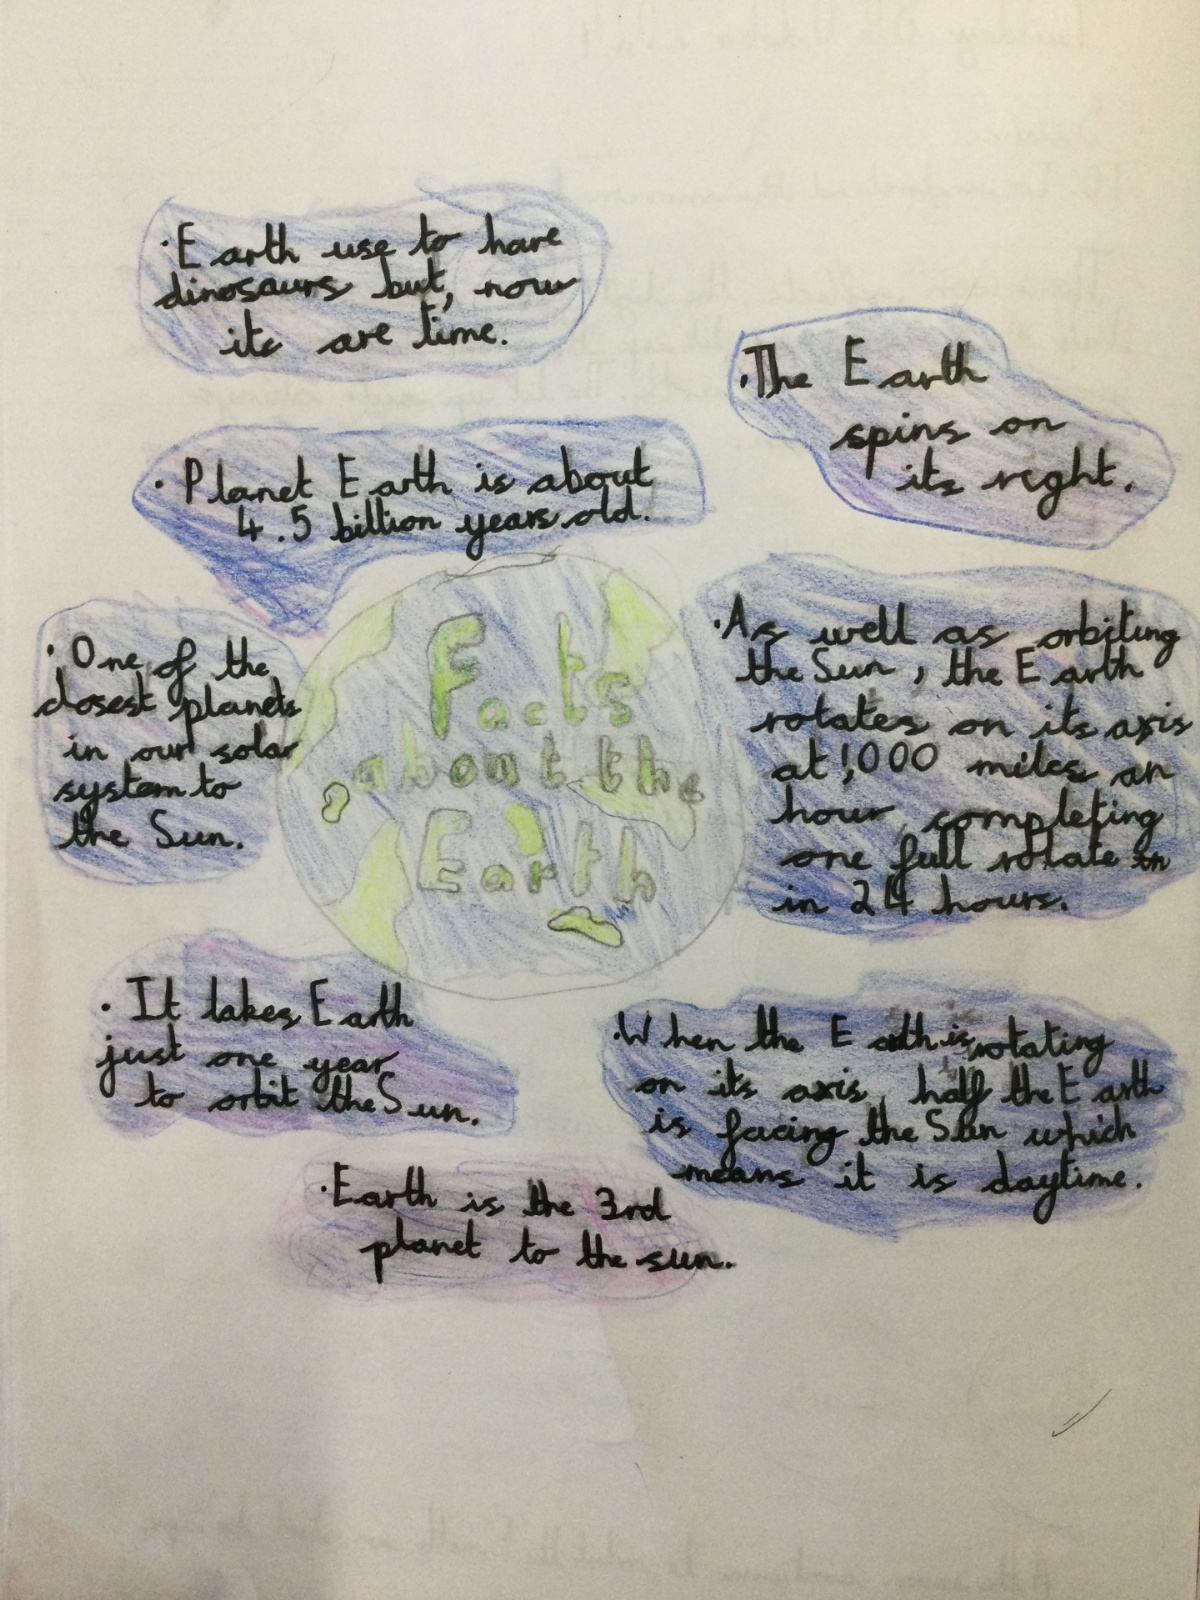 · Earth use to have
dinosaurs but, now
its are time.
· The Earth
spins on
its reght.
· Planet Earth is about
4.5 billion years old.
Facts
about the
Earth
· One of the
closest planets
in our solar
system to
the Sun.
· As well as orbiting
the Sun, the Earth
rotates on its axis
at 1,000 miles an
hour, completing
one full rotate
in 24 hours.
· It takes Earth
just one year
to orbit the Sun.
· When the Earth is rotating
on its axis, half the Earth
is facing the Sun which
means it is daytime.
· Earth is the 3rd
planet to the sun.